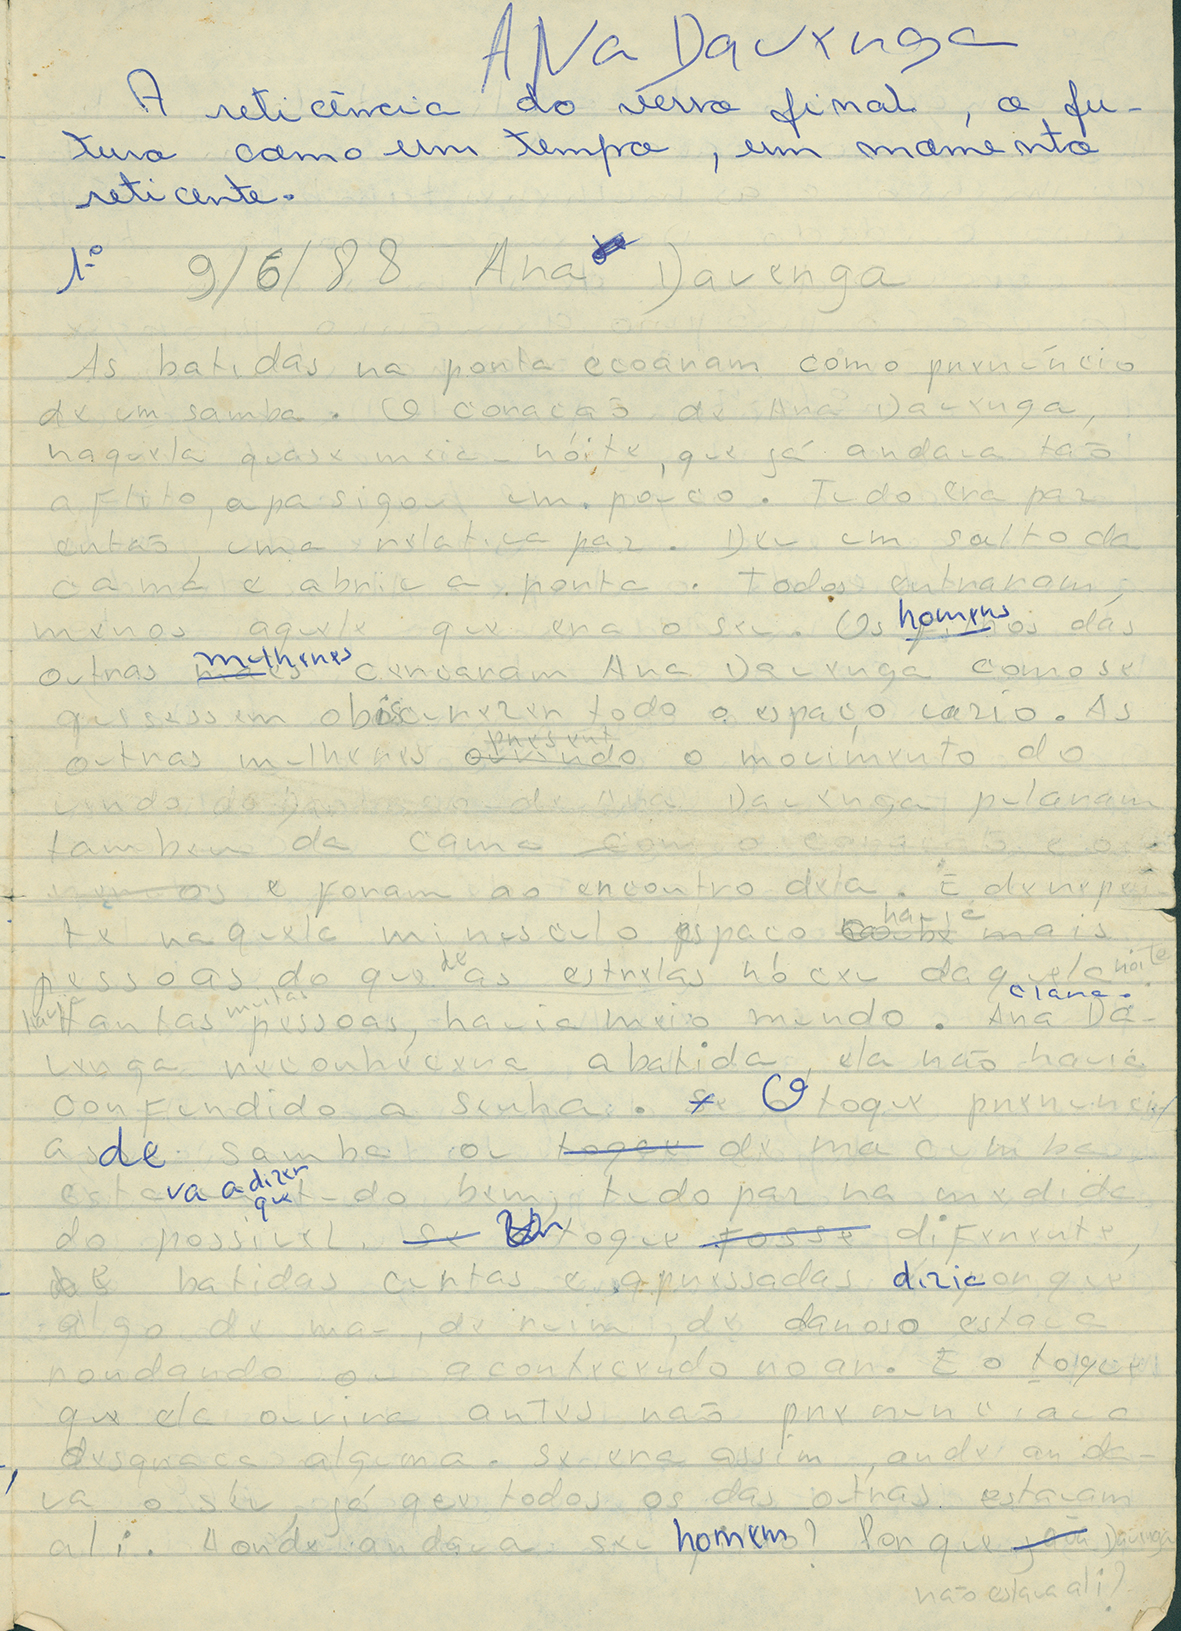 ANa Davenga
A reticência do verso final, o fu-
turo como um tempo, um momento
reticente.
1º 9/6/88 Ana Davenga
As batidas na porta ecoaram como prenúncio
de um samba. O coração de Ana Davenga,
naquela quase meia-nóite, que já andava tão
aflito, apasigou um pouco. Tudo era paz
então, uma relativa paz. Deu um salto da
cama e abriu a porta. Todos entraram,
menos aquele que era o seu. Os homens das
outras mulheres cercaram Ana Davenga como se
quisessem obscurezer todo o espaço vazio. As
outras mulheres ouvindo present o movimento do
vindo do de Ana Davenga pularam
tambem da cama com o coração e o
e foram ao encontro dela. E derepen
te naquela minusculo espaço coube havia mais
pessoas do que de as estrelas nó ceu daquela noite
clara.
havia tantas muitas pessoas, havia meio mundo. Ana Da-
venga reconhecera a batida, ela não havia
confundido a senha. Se O toque prenuncia
as de samba ou toque de macumba
estava a dizer que tudo bem, tudo paz na medida
do possivel. Se Um toque fosse diferente,
de batidas curtas e apressadas dizia que
algo de mau, de ruim, de danoso estava
rondando ou acontecendo no ar. E o toque
que ela ouvira antes não prenunciava
desgraça alguma. Se era assim, onde anda-
va o seu, já que todos os das outras estavam
ali. Aonde andava seu homem? Por que Davenga
não estava ali?